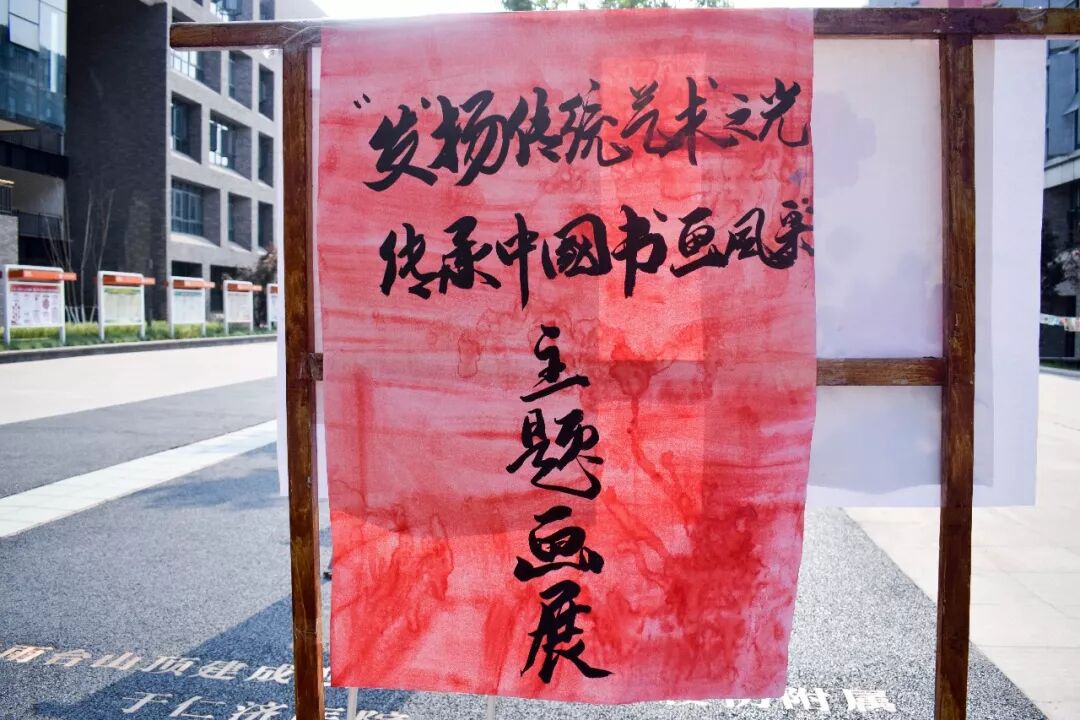 “发扬传统艺术之光
传承中国书画风采
主题画展
雨台山顶建成
于仁济医院
附属